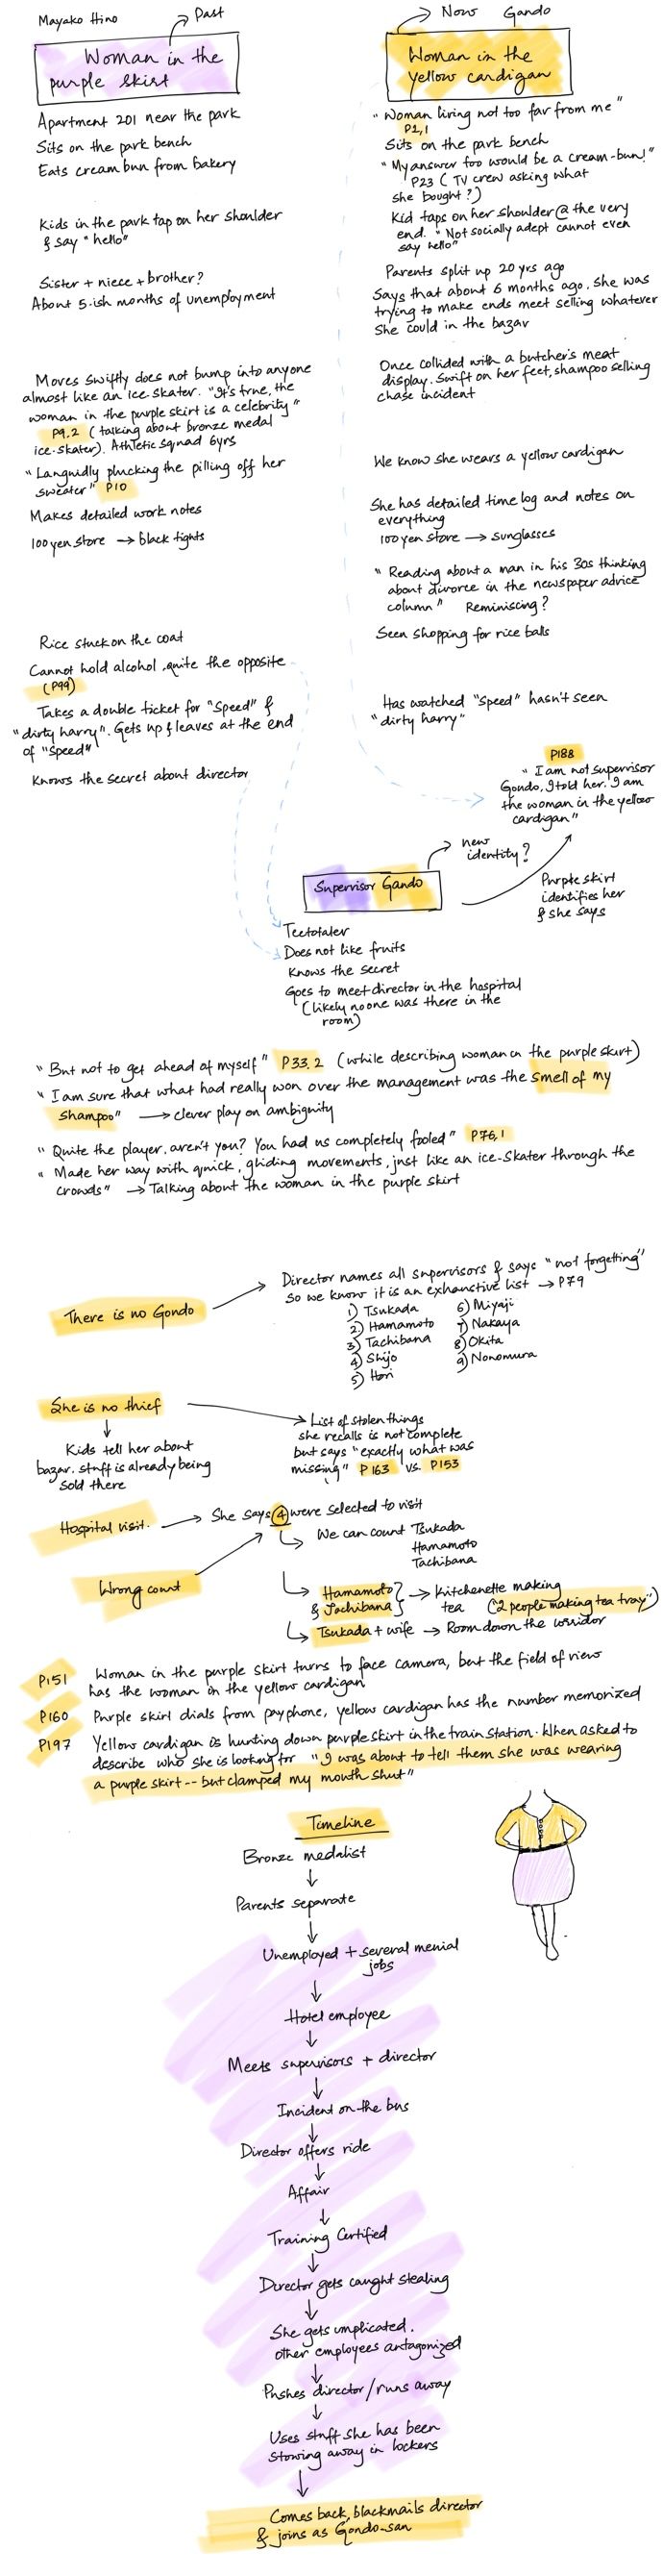 Mayako Hino
Past
Woman in the
purple skirt
Apartment 201 near the park
Sits on the park bench
Eats cream bun from bakery
Kids in the park tap on her shoulder
& say "hello"
Sister + niece + brother?
About 5-ish months of unemployment
Moves swiftly does not bump into anyone
almost like an ice-skater. "It's true, the
woman in the purple skirt is a celebrity"
P9.2 (talking about bronze medal
ice-skater). Athletic squad 6yrs
"Languidly plucking the pilling off her
sweater" P10
Makes detailed work notes
100 yen store → black tights
Rice stuck on the coat
Cannot hold alcohol, quite the opposite
(P99)
Takes a double ticket for "Speed" &
"dirty harry". Gets up & leaves at the end
of "Speed"
Knows the secret about director
Now Gando
Woman in the
yellow cardigan
"Woman living not too far from me"
P2,1
Sits on the park bench
"My answer too would be a cream-bun!"
P23 (TV crew asking what
she bought?)
Kid taps on her shoulder @ the very
end. "Not socially adept cannot even
say hello"
Parents split up 20 yrs ago
Says that about 6 months ago, she was
trying to make ends meet selling whatever
she could in the bazar
Once collided with a butcher's meat
display. Swift on her feet, shampoo selling
chase incident
We know she wears a yellow cardigan
She has detailed time log and notes on
everything
100 yen store → sunglasses
"Reading about a man in his 30s thinking
about divorce in the newspaper advice
column" Reminiscing?
Seen shopping for rice balls
Has watched "Speed" hasn't seen
"dirty harry"
P188
"I am not supervisor
Gondo, I told her. I am
the woman in the yellow
cardigan"
new
identity?
Supervisor Gando
Purple skirt
identifies her
& she says
Teetotaler
Does not like fruits
Knows the secret
Goes to meet director in the hospital
(likely no one was there in the
room)
"But not to get ahead of myself" P33.2 (while describing woman in the purple skirt)
"I am sure that what had really won over the management was the smell of my
shampoo" → clever play on ambiguity
"Quite the player, aren't you? You had us completely fooled" P76,1
"Made her way with quick, gliding movements, just like an ice-skater through the
crowds" → Talking about the woman in the purple skirt
There is no Gondo
Director names all supervisors & says "not forgetting"
so we know it is an exhaustive list → P79
1) Tsukada 6) Miyaji
2) Hamamoto 7) Nakaya
3) Tachibana 8) Okita
4) Shijo 9) Nonomura
5) Hori
She is no thief
Kids tell her about
bazar. stuff is already being
sold there
List of stolen things
she recalls is not complete
but says "exactly what was
missing" P163 vs. P153
Hospital visit. → She says 4 were selected to visit
We can count Tsukada
Hamamoto
Tachibana
Wrong count
Hamamoto } → kitchenette making
& Tachibana tea ("2 people making tea tray")
Tsukada + wife → Room down the corridor
P151 Woman in the purple skirt turns to face camera, but the field of view
has the woman in the yellow cardigan
P160 Purple skirt dials from payphone, yellow cardigan has the number memorized
P197 Yellow cardigan is hunting down purple skirt in the train station. When asked to
describe who she is looking for "I was about to tell them she was wearing
a purple skirt -- but clamped my mouth shut"
Timeline
Bronze medalist
Parents separate
Unemployed + several menial
jobs
Hotel employee
Meets supervisors + director
Incident on the bus
Director offers ride
Affair
Training Certified
Director gets caught stealing
She gets implicated.
other employees antagonized
Pushes director / runs away
Uses stuff she has been
stowing away in lockers
Comes back, blackmails director
& joins as Gondo-san